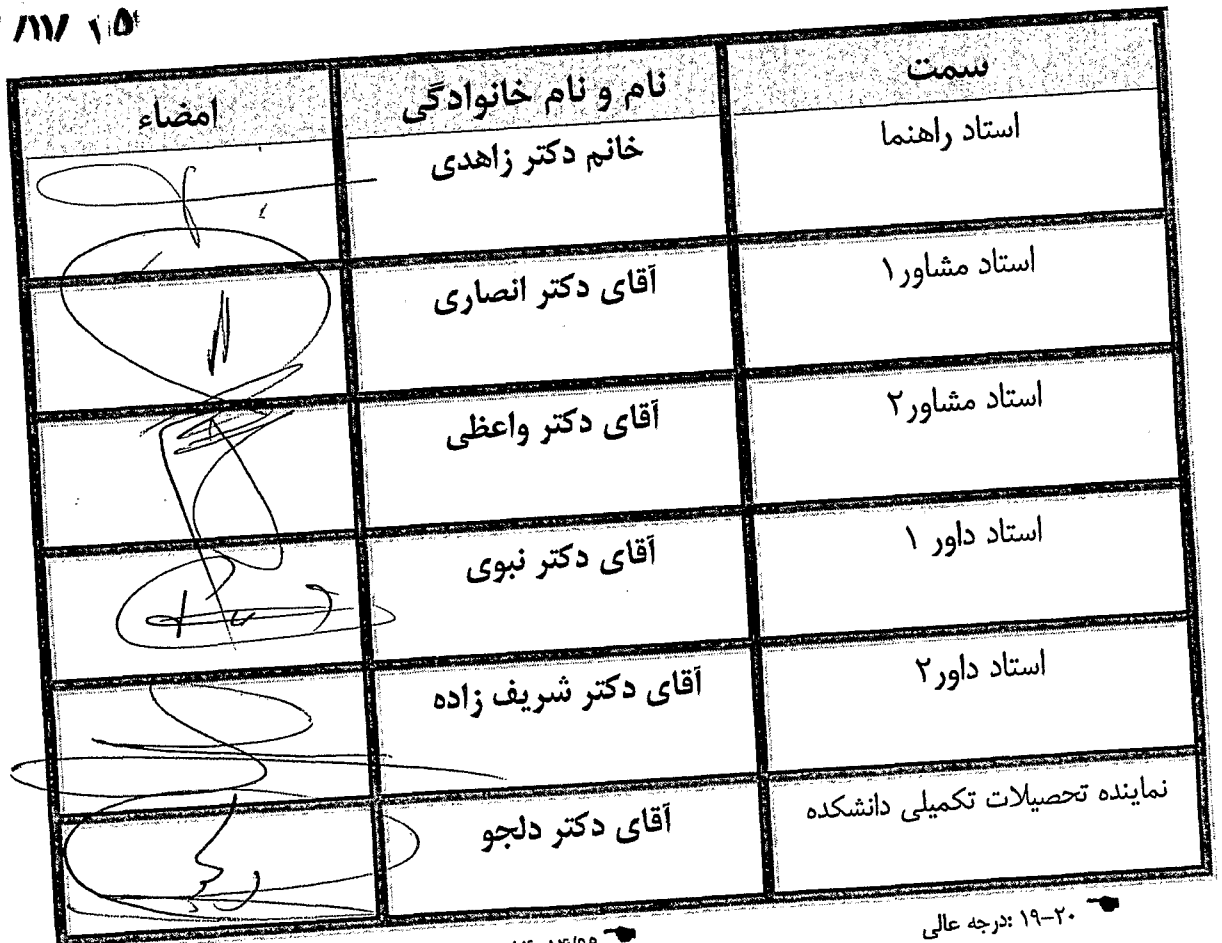 /۱۱/ ۱۵
سمت نام و نام خانوادگی امضاء
استاد راهنما خانم دکتر زاهدی
استاد مشاور۱ آقای دکتر انصاری
استاد مشاور۲ آقای دکتر واعظی
استاد داور ۱ آقای دکتر نبوی
استاد داور۲ آقای دکتر شریف زاده
نماینده تحصیلات تکمیلی دانشکده آقای دکتر دلجو
۱۹-۲۰ :درجه عالی